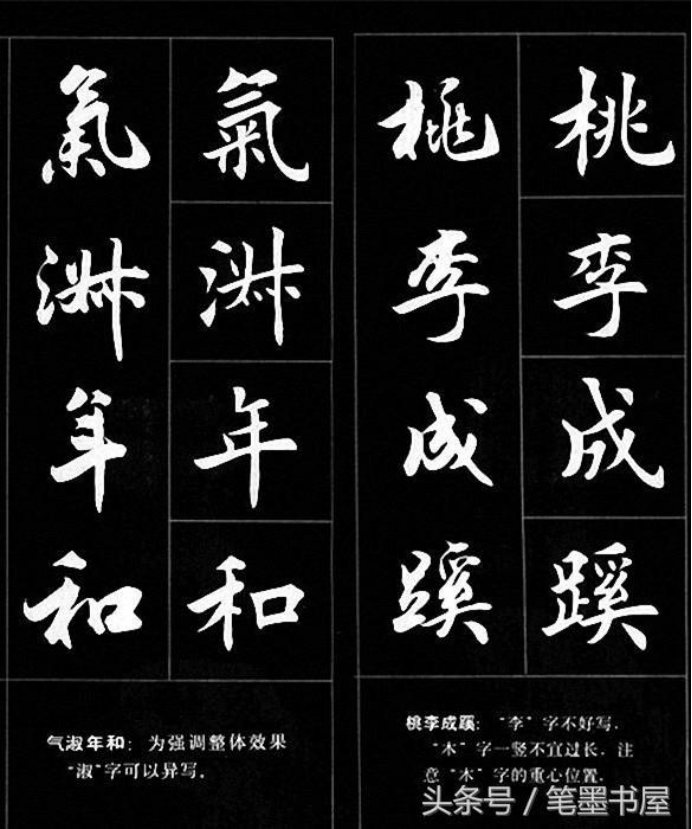 桃李成蹊
桃李成蹊
氣淑年和
氣淑年和
桃李成蹊："李"字不好写．
"木"字一竖不宜过长．注
意"木"字的重心位置．
气淑年和：为强调整体效果
"淑"字可以异写．
头条号 / 笔墨书屋